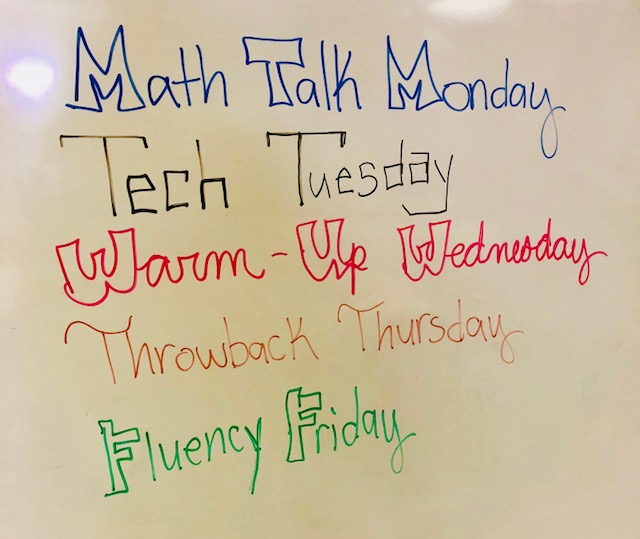 Math Talk Monday
Tech Tuesday
Warm-Up Wednesday
Throwback Thursday
Fluency Friday